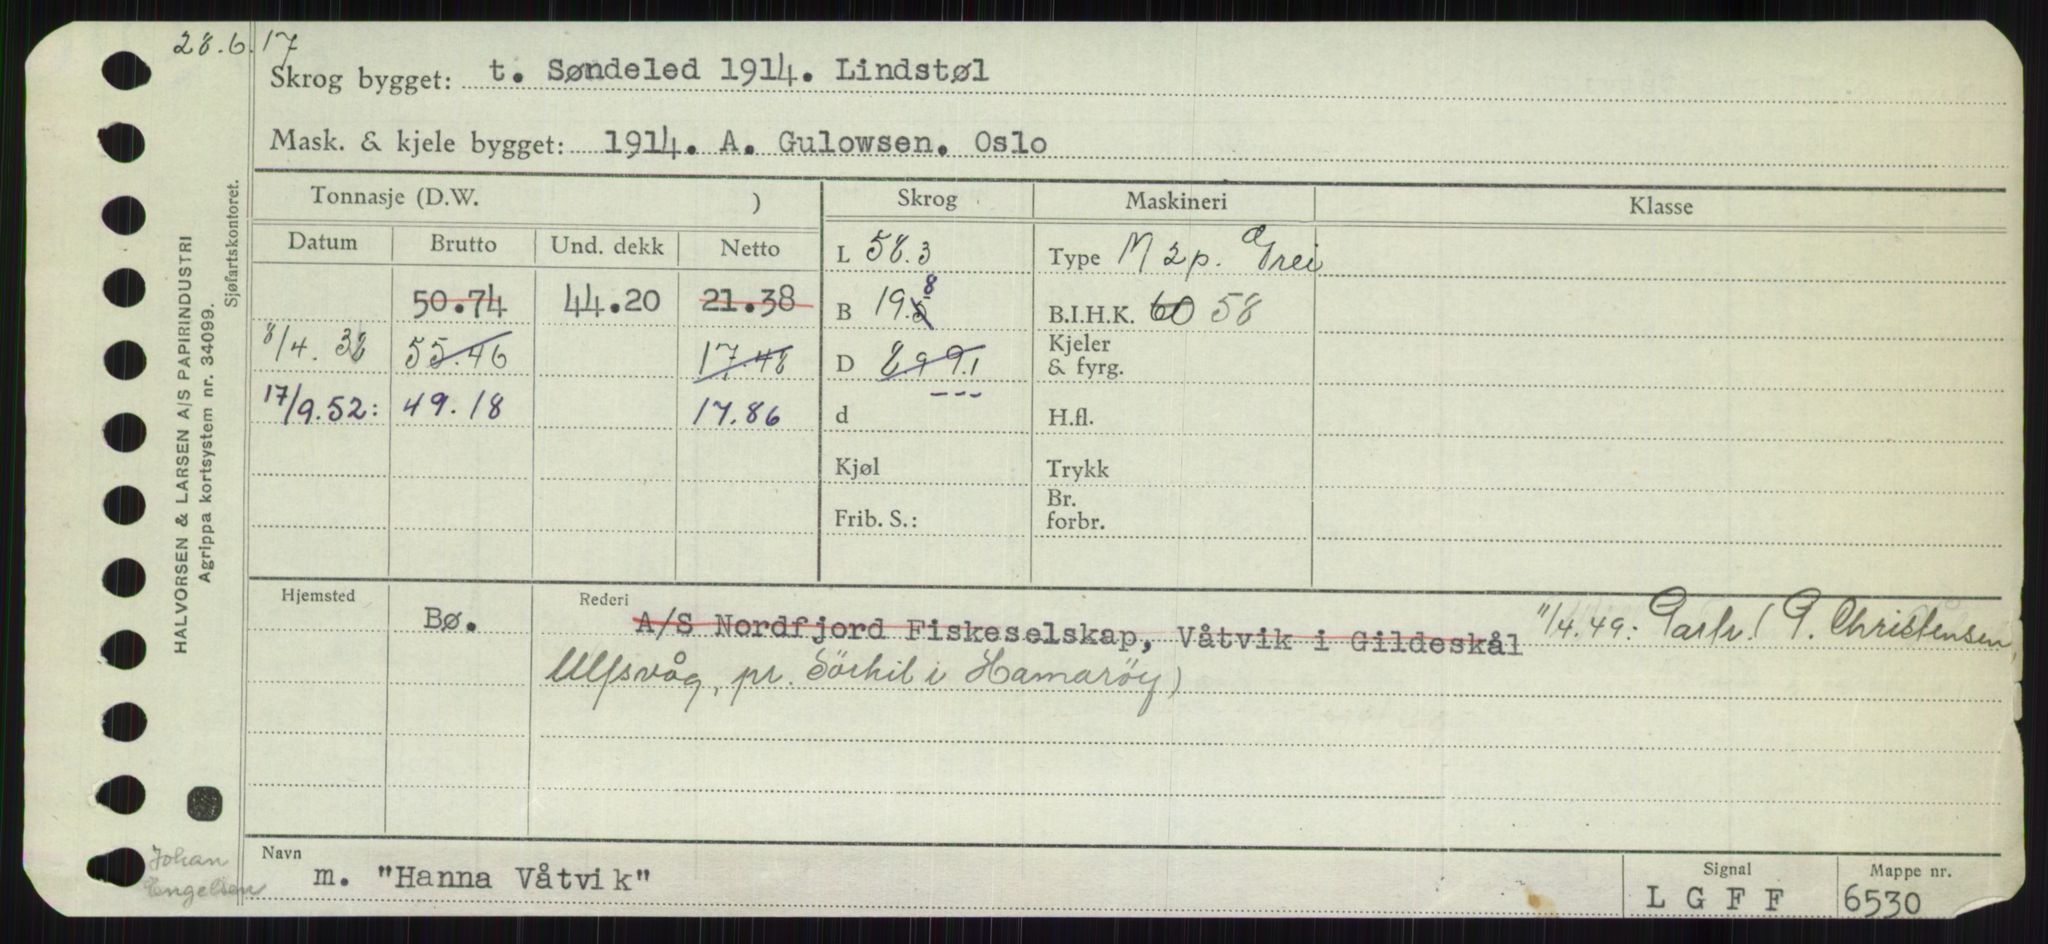 28.6.17
Skrog bygget: t. Søndeled 1914. Lindstøl
Mask. & kjele bygget: 1914. A. Gulowsen. Oslo
Tonnasje (D.W. ) Skrog Maskineri Klasse
Datum Brutto Und. dekk Netto
L 58.3 Type M 2p. Grei
50.74 44.20 21.38 B 19.5 8 B.I.H.K. 60 58
8/4. 32 55.46 17.48 D 8.9 9.1 Kjeler
& fyrg.
17/9.52: 49.18 17.86 d --- H.fl.
Kjøl Trykk
Frib. S.: Br.
forbr.
Hjemsted Rederi
Bø. A/S Nordfjord Fiskeselskap, Våtvik i Gildeskål 11/4.49: Partr. (P. Christensen,
Ulfsvåg, pr. i Hamarøy)
Navn
m. "Hanna Våtvik"
Signal
L G F F
Mappe nr.
6530
HALVORSEN & LARSEN A/S PAPIRINDUSTRI
Agrippa kortsystem nr. 34099.
Sjøfartskontoret.
Johan
Engelsen